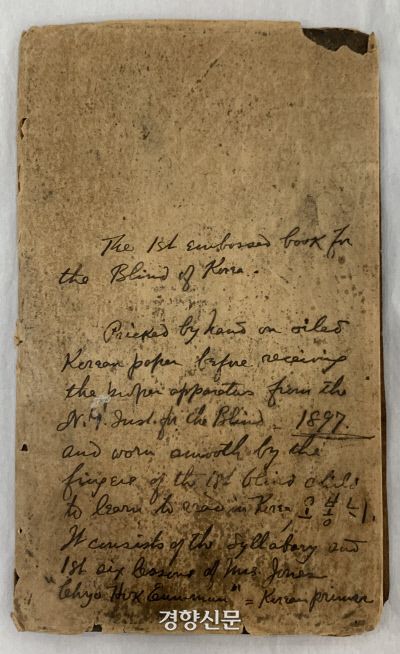 The 1st embossed book for
the Blind of Korea.
Pricked by hand on oiled
Korean paper before receiving
the proper apparatus from the
N.Y. Inst. for the Blind. 1897.
and worn smooth by the
fingers of the 1st blind child
to learn to read in Korea,
It consists of the Syllabary and
1st six lessons of Mrs Jones
"Cho Hok Eunmun" = Korean primer
경향신문